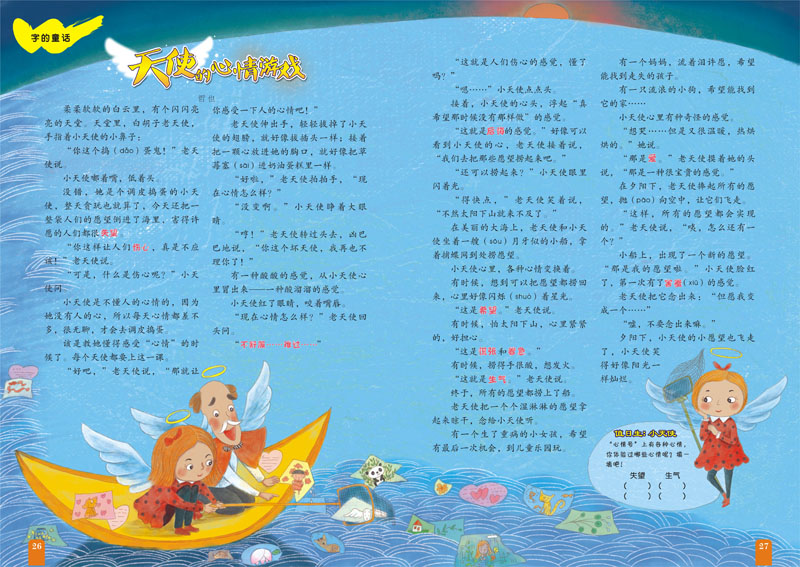 字的童话
天使的心情游戏
哲也
柔柔软软的白云里，有个闪闪亮
亮的天堂。天堂里，白胡子老天使，
手指着小天使的小鼻子：
“你这个捣（dǎo）蛋鬼！”老天
使说。
小天使嘟着嘴，低着头。
没错，她是个调皮捣蛋的小天
使，整天贪玩也就算了，今天还把一
整袋人们的愿望倒进了海里，害得许
愿的人们都很失望。
“你这样让人们伤心，真是不应
该！”老天使说。
“可是，什么是伤心呢？”小天使
问。
小天使是不懂人的心情的，因为
她没有人的心，所以每天心情都差不
多，很无聊，才会去调皮捣蛋。
该是教她懂得感受“心情”的时
候了。每个天使都要上这一课。
“好吧，”老天使说，“那就让
你感受一下人的心情吧！”
老天使伸出手，轻轻拔掉了小天
使的翅膀，就好像拔插头一样；接着
把一颗心放进她的胸口，就好像把草
莓塞（sāi）进奶油蛋糕里一样。
“好啦，”老天使拍拍手，“现
在心情怎么样？”
“没变啊。”小天使睁着大眼
睛。
“哼！”老天使转过头去，凶巴
巴地说，“你这个坏天使，我再也不
理你了！”
有一种酸酸的感觉，从小天使心
里冒出来——一种酸溜溜的感觉。
小天使红了眼睛，咬着嘴唇。
“现在心情怎么样？”老天使回
头问。
“不舒服……难过……”
“这就是人们伤心的感觉，懂了
吗？”
“嗯……”小天使点点头。
接着，小天使的心头，浮起“真
希望那时候没有那样做”的感觉。
“这就是后悔的感觉。”好像可以
看到小天使的心，老天使接着说，
“我们去把那些愿望捞起来吧。”
“还可以捞起来？”小天使眼里
闪着光。
“得快点，”老天使笑着说，
“不然太阳下山就来不及了。”
在美丽的大海上，老天使和小天
使坐着一艘（sōu）月牙似的小船，拿
着捕蝶网到处捞愿望。
小天使心里，各种心情变换着。
有时候，想到可以把愿望都捞回
来，心里好像闪烁（shuò）着星光。
“这是希望。”老天使说。
有时候，怕太阳下山，心里紧紧
的，好担心。
“这是紧张和着急。”
有时候，捞得手很酸，想发火。
“这就是生气。”老天使说。
终于，所有的愿望都捞上了船。
老天使把一个个湿淋淋的愿望拿
起来晾干，念给小天使听。
有一个生了重病的小女孩，希望
有最后一次机会，到儿童乐园玩。
有一个妈妈，流着泪许愿，希望
能找到走失的孩子。
有一只流浪的小狗，希望能找到
它的家……
小天使心里有种奇怪的感觉。
“想哭……但是又很温暖，热烘
烘的。”她说。
“那是爱。”老天使摸着她的头
说，“那是一种很宝贵的感觉。”
在夕阳下，老天使捧起所有的愿
望，抛（pāo）向空中，让它们飞走。
“这样，所有的愿望都会实现
的。”老天使说，“咦，怎么还有一
个？”
小船上，出现了一个新的愿望。
“那是我的愿望啦。”小天使脸红
了，第一次有了害羞（xiū）的感觉。
老天使把它念出来：“但愿我变
成一个……”
“嘘，不要念出来嘛。”
夕阳下，小天使的小愿望也飞走
了，小天使笑
得好像阳光一
样灿烂。
值日生：小天使
“心情号”上有各种心情，
你体验过哪些心情呢？填一
填吧！
失望 生气
（ ）（ ）
（ ）（ ）
26
27